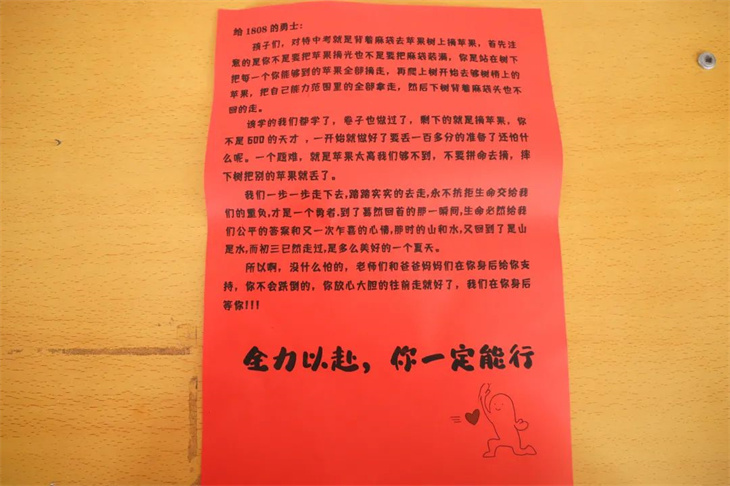 给 1808 的勇士：
孩子们，对待中考就是背着麻袋去苹果树上摘苹果，首先注
意的是你不是要把苹果摘光也不是要把麻袋装满，你是站在树下
把每一个你能够到的苹果全部摘走，再爬上树开始去够树梢上的
苹果，把自己能力范围里的全部拿走，然后下树背着麻袋头也不
回的走。
该学的我们都学了，卷子也做过了，剩下的就是摘苹果，你
不是600的天才，一开始就做好了要丢一百多分的准备了还怕什
么呢。一个题难，就是苹果太高我们够不到，不要拼命去摘，摔
下树把别的苹果就丢了。
我们一步一步走下去,踏踏实实的去走,永不抗拒生命交给我
们的重负,才是一个勇者.到了蓦然回首的那一瞬间,生命必然给我
们公平的答案和又一次乍喜的心情,那时的山和水,又回到了是山
是水,而初三已然走过,是多么美好的一个夏天。
所以啊，没什么怕的，老师们和爸爸妈妈们在你身后给你支
持，你不会跌倒的，你放心大胆的往前走就好了，我们在你身后
等你!!!
全力以赴，你一定能行